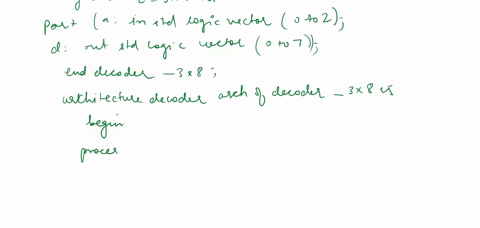 port (a: in std logic vector (0 to 2);
d: out std logic vector (0 to 7));
end decoder _3*8;
architecture decoder arch of decoder _3*8 is
begin
proces